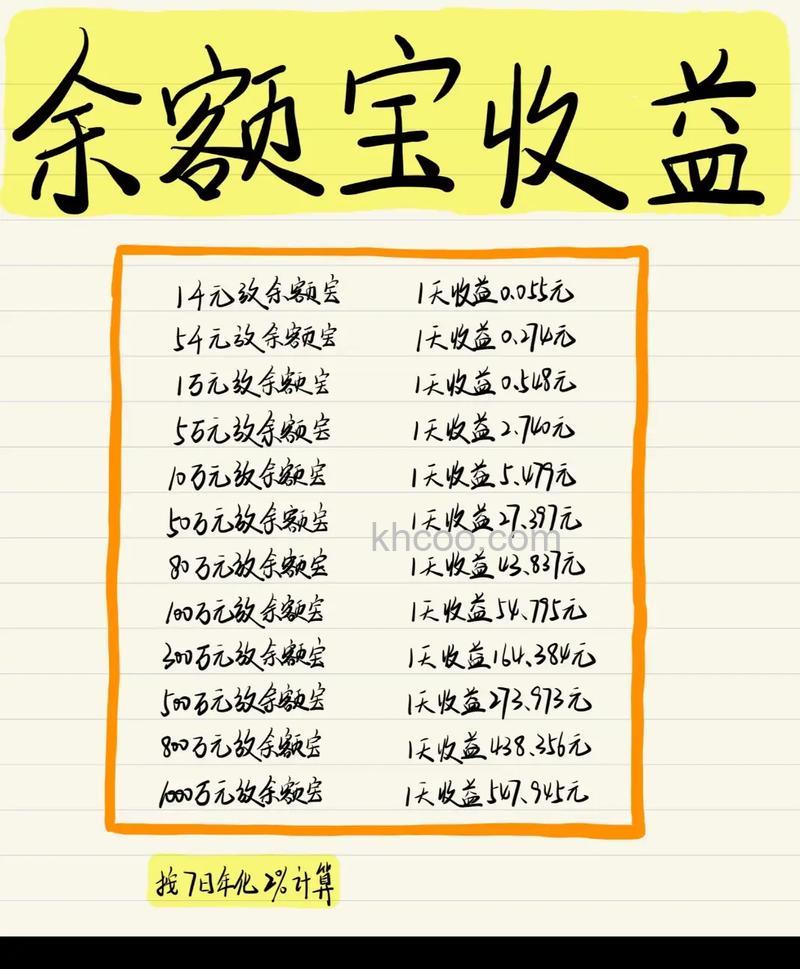 余额宝收益
1千元放余额宝 1天收益0.055元
5千元放余额宝 1天收益0.274元
1万元放余额宝 1天收益0.548元
5万元放余额宝 1天收益2.740元
10万元放余额宝 1天收益5.479元
50万元放余额宝 1天收益27.397元
khcoo.com
80万元放余额宝 1天收益43.837元
100万元放余额宝 1天收益54.795元
300万元放余额宝 1天收益164.384元
500万元放余额宝 1天收益273.973元
800万元放余额宝 1天收益438.356元
1000万元放余额宝 1天收益547.945元
按7日年化2%计算